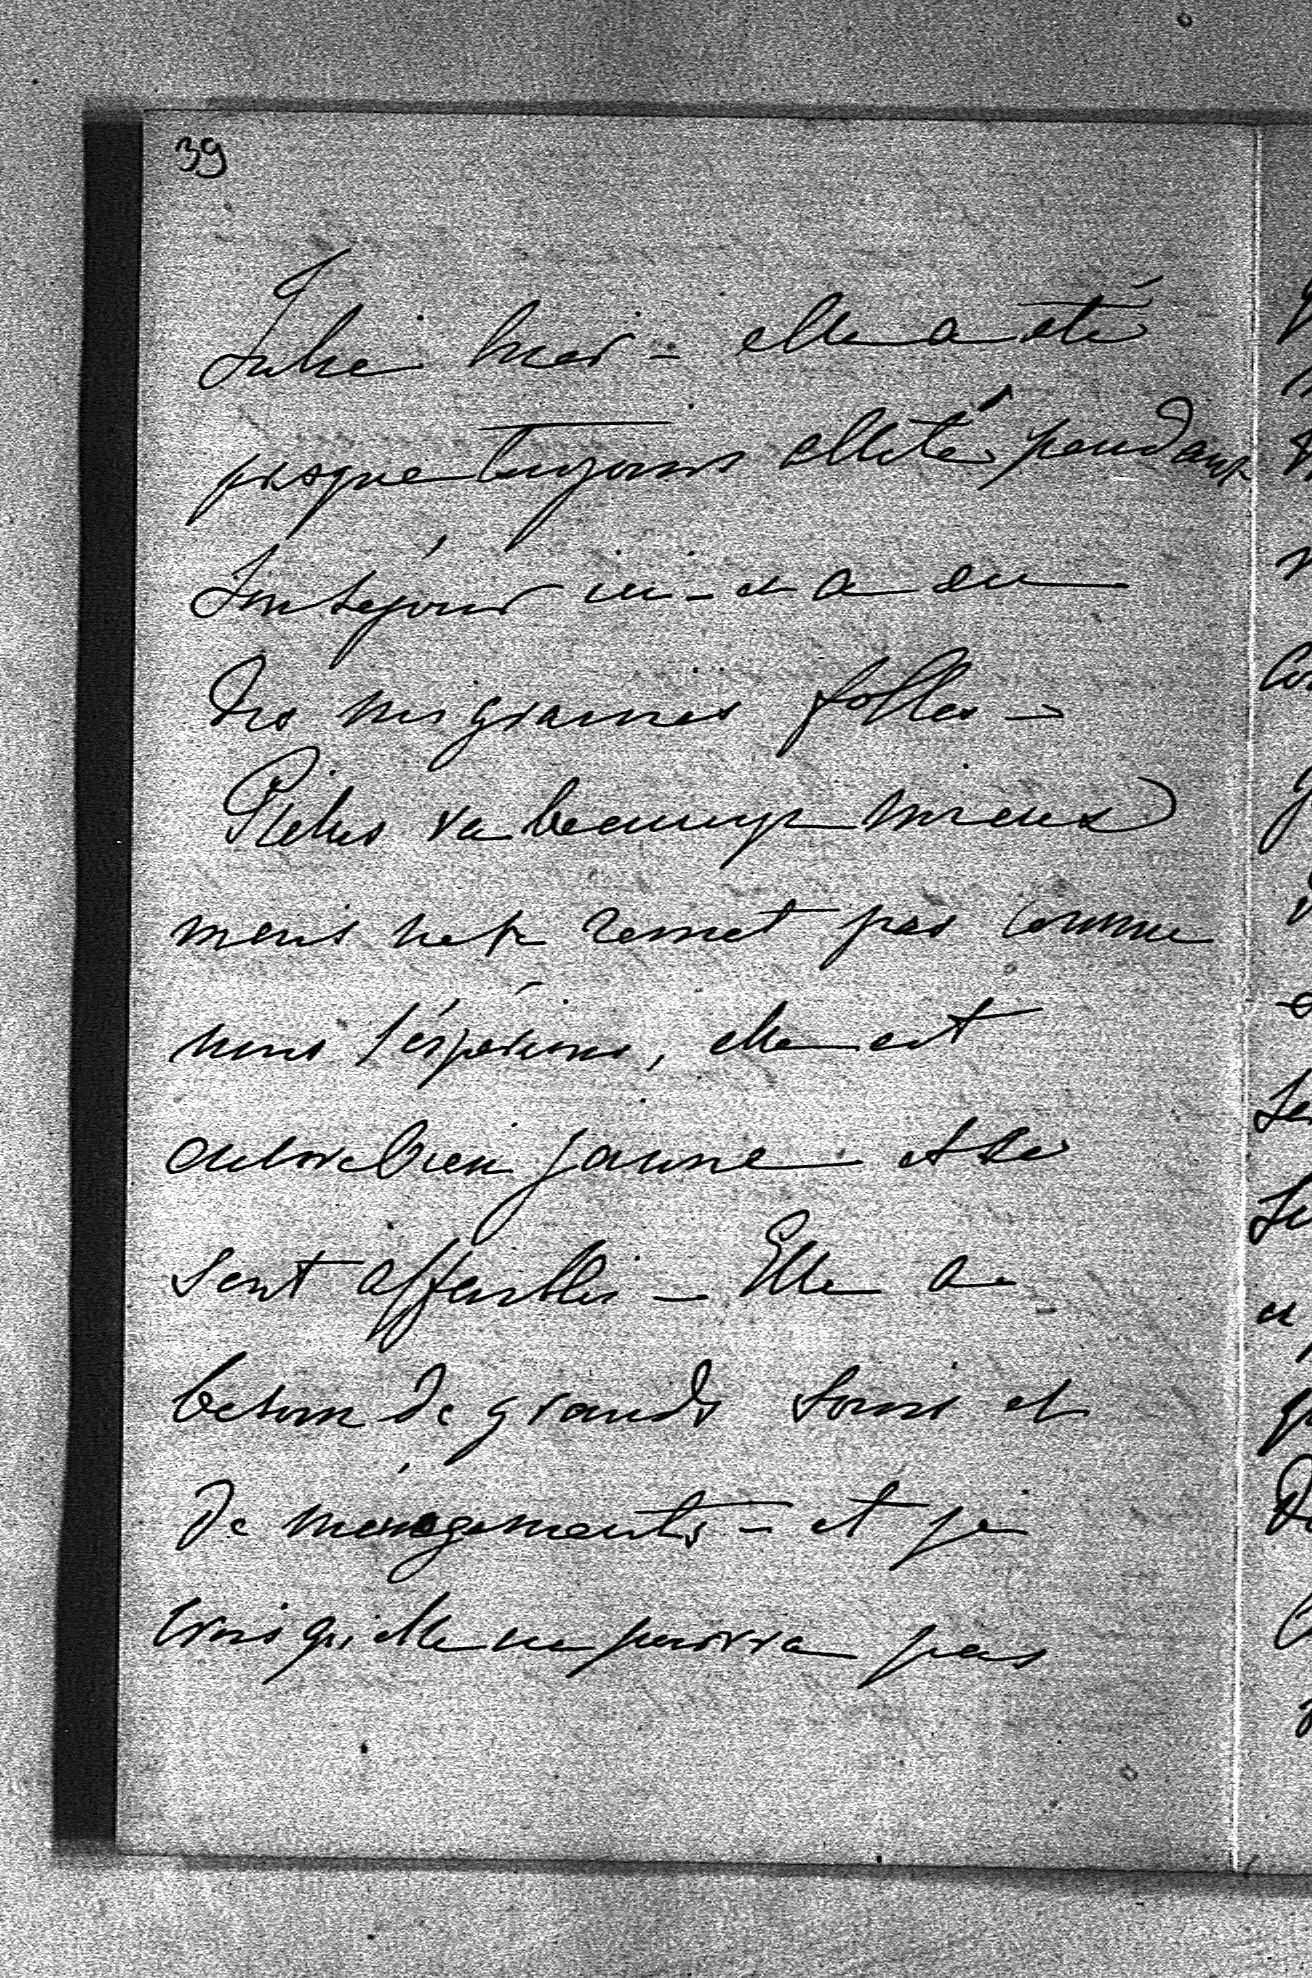 39
Julie hier - elle a été
presque toujours alitée pendant
son séjour ici - et a eu
des migraines folles -
va beaucoup mieux
mais ne se remet pas comme
nous l'espérions, elle est
encore bien jaune et se
sent affaiblie - Elle a
besoin de grands soins et
de ménagements - et je
crois qu'elle ne pourra pas